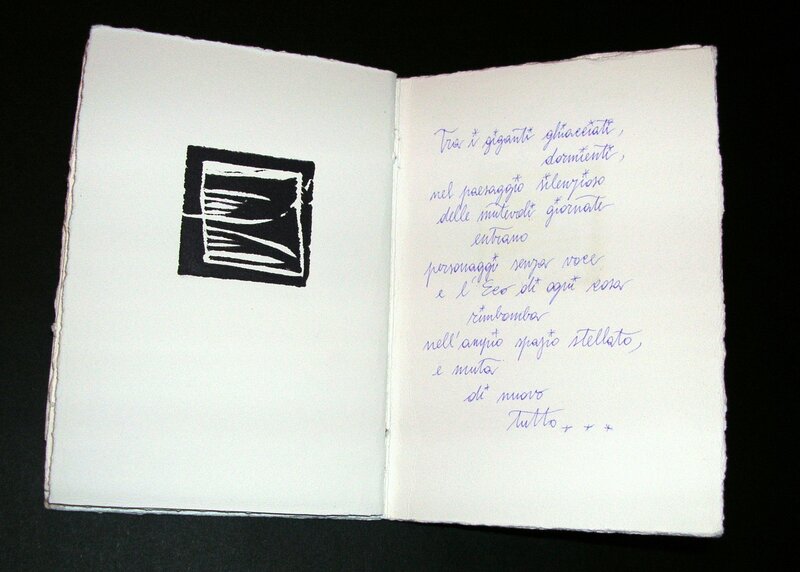 Tra i giganti ghiacciati,
dormienti,
nel paesaggio silenzioso
delle mutevoli giornate
entrano
personaggi senza voce
e l'Eco di ogni cosa
rimbomba
nell'ampio spazio stellato,
e muta
di nuovo
tutto...